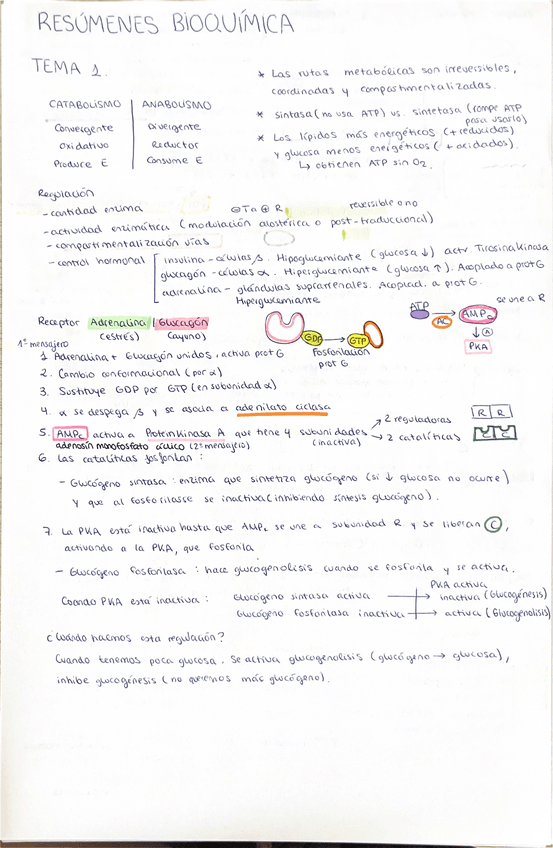 RESÚMENES BIOQUÍMICA
TEMA 1.
CATABOLISMO | ANABOLISMO
Convergente | Divergente
Oxidativo | Reductor
Produce E | Consume E
* Las rutas metabólicas son irreversibles,
coordinadas y compartimentalizadas.
* sintasa (no usa ATP) vs. sintetasa (rompe ATP
para usarlo)
* Los lípidos más energéticos (+ reducidos)
y glucosa menos energéticos (+ oxidados).
↳ obtienen ATP sin O₂.
Regulación
- cantidad enzima
reversible o no
- actividad enzimática (modulación alostérica o post-traduccional)
- compartimentalización vías
- control hormonal
insulina - células β. Hipoglucemiante (glucosa ↓) activ. Tirosina kinasa
glucagón - células α. Hiperglucemiante (glucosa ↑). Acoplado a prot G
adrenalina - glándulas suprarrenales. Acoplad. a prot G.
Hiperglucemiante
Receptor Adrenalina / Glucagón
(estrés) (ayuno)
1er mensajero
GDP → GTP
Fosforilación
prot G
ATP → AMPc
AC
se une a R
PKA
1. Adrenalina + Glucagón unidos, activa prot G
2. Cambio conformacional (por α)
3. Sustituye GDP por GTP (en subunidad α)
4. α se despega β y se asocia a adenilato ciclasa
5. AMPc activa a Proteinkinasa A que tiene 4 subunidades → 2 reguladoras
(inactiva) → 2 catalíticas
R R
C C
adenosín monofosfato cíclico (2º mensajero)
6. Las catalíticas fosforilan :
- Glucógeno sintasa : enzima que sintetiza glucógeno (si ↓ glucosa no ocurre)
y que al fosforilasse se inactiva (inhibiendo síntesis glucógeno).
7. La PKA está inactiva hasta que AMPc se une a subunidad R y se liberan C,
activando a la PKA, que fosforila
- Glucógeno fosforilasa : hace glucogenolisis cuando se fosforila y se activa.
PKA activa
Cuando PKA está inactiva : Glucógeno sintasa activa → inactiva (Glucogénesis)
Glucógeno fosforilasa inactiva → activa (Glucogenolisis)
¿Cuándo hacemos esta regulación?
Cuando tenemos poca glucosa. Se activa glucogenolisis (glucógeno → glucosa),
inhibe glucogénesis (no queremos más glucógeno).